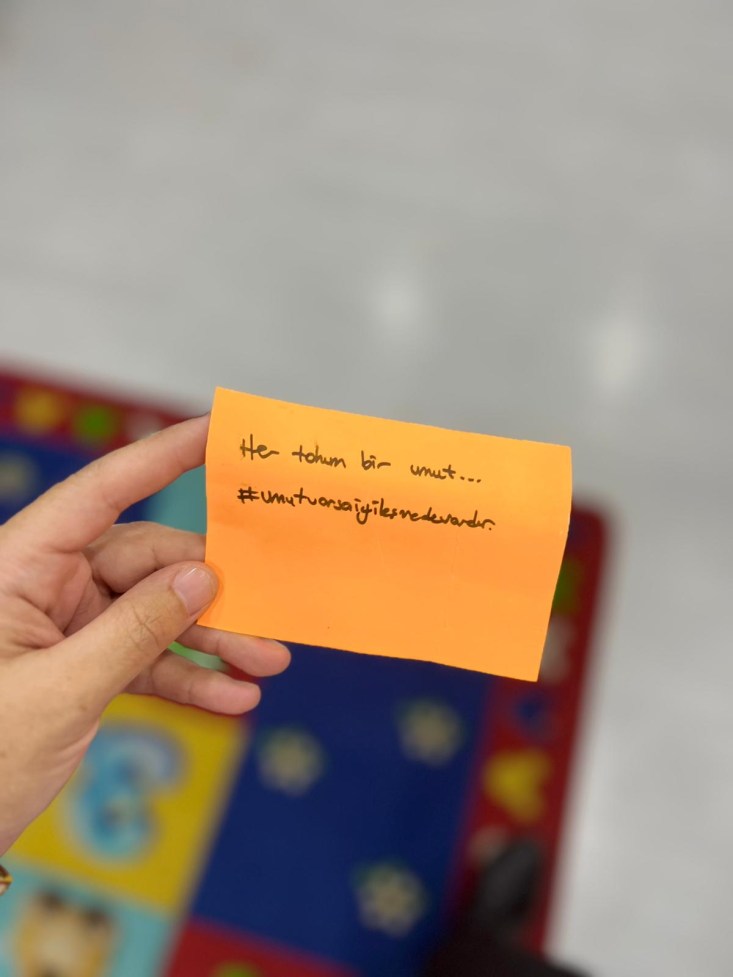 Her tohum bir umut...
#umutvarsaiyileşmedevardır.